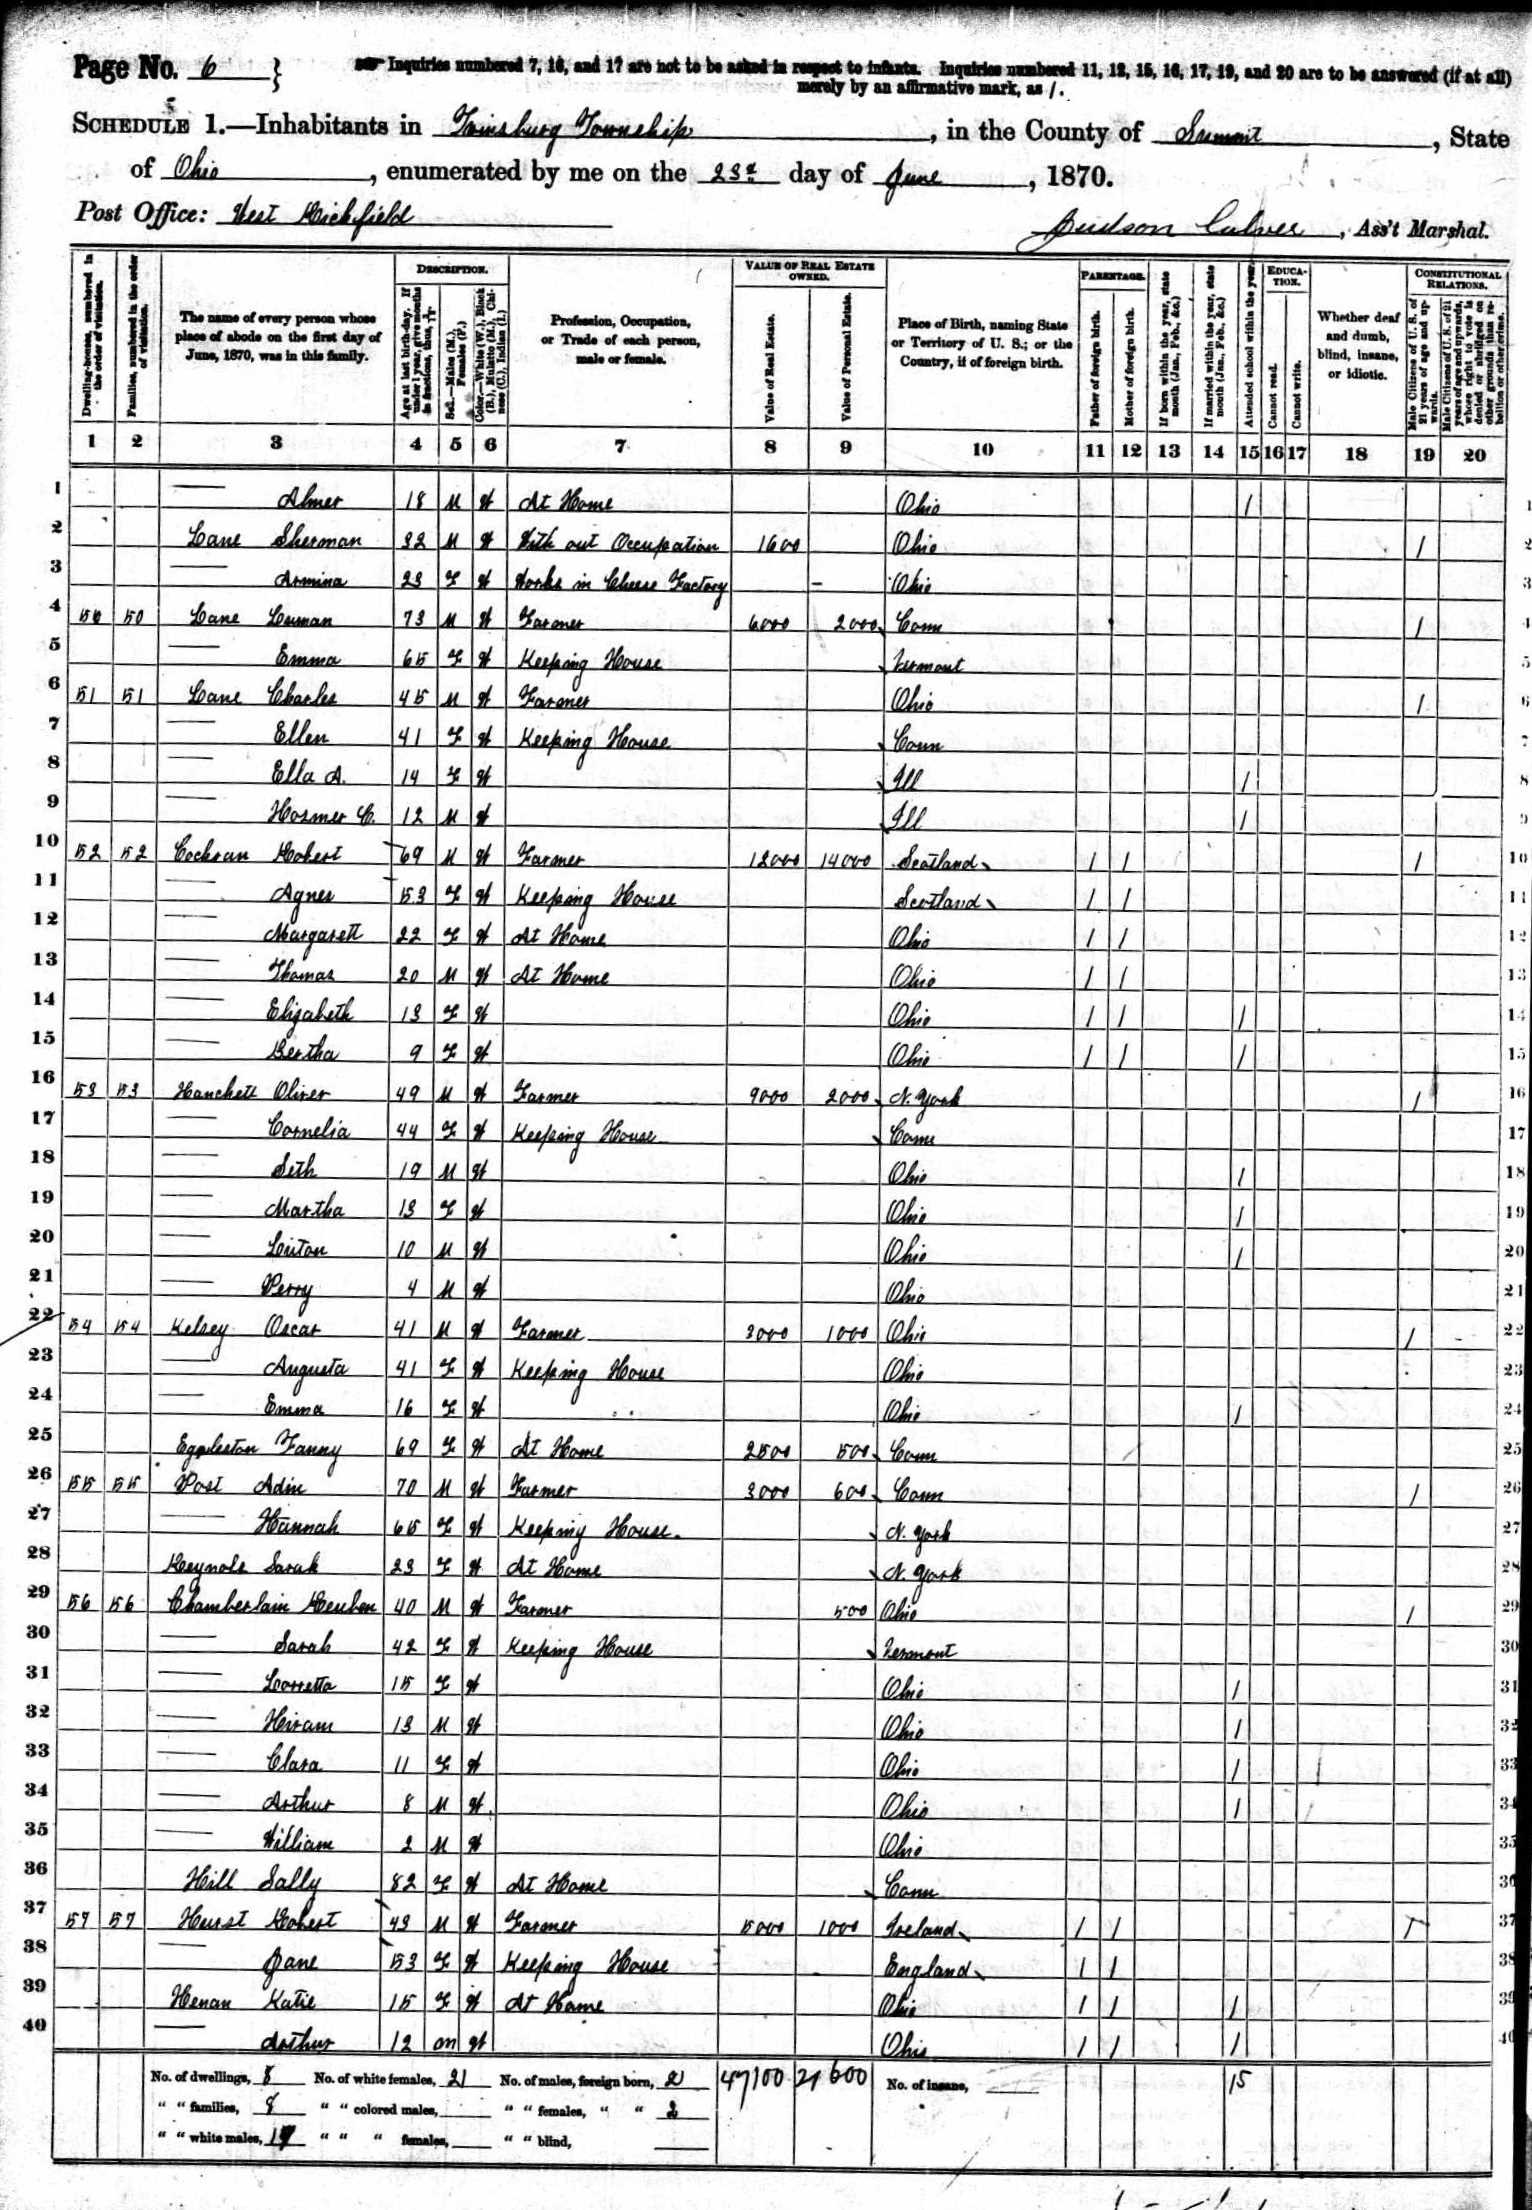 Page No. 6 } ☞ Inquiries numbered 7, 16, and 17 are not to be asked in respect to infants. Inquiries numbered 11, 12, 15, 16, 17, 19, and 20 are to be answered (if at all)
merely by an affirmative mark, as /.
SCHEDULE 1.—Inhabitants in Twinsburg Township, in the County of Summit, State
of Ohio, enumerated by me on the 23d day of June, 1870.
Post Office: West Richfield
Judson Culver, Ass't Marshal.
Dwelling-houses, numbered in the order of visitation.
Families, numbered in the order of visitation.
The name of every person whose place of abode on the first day of June, 1870, was in this family.
DESCRIPTION.
Age at last birth-day. If under 1 year, give months in fractions, thus, 3/12
Sex.—Males (M.), Females (F.)
Color.—White (W.), Black (B.), Mulatto (M.), Chinese (C.), Indian (I.)
Profession, Occupation, or Trade of each person, male or female.
VALUE OF REAL ESTATE OWNED.
Value of Real Estate.
Value of Personal Estate.
Place of Birth, naming State or Territory of U. S.; or the Country, if of foreign birth.
PARENTAGE.
Father of foreign birth.
Mother of foreign birth.
If born within the year, state month (Jan., Feb., &c.)
If married within the year, state month (Jan., Feb., &c.)
Attended school within the year.
EDUCATION.
Cannot read.
Cannot write.
Whether deaf and dumb, blind, insane, or idiotic.
CONSTITUTIONAL RELATIONS.
Male Citizens of U. S. of 21 years of age and upwards.
Male Citizens of U. S. of 21 years of age and upwards, whose right to vote is denied or abridged on other grounds than rebellion or other crime.
1 2 3 4 5 6 7 8 9 10 11 12 13 14 15 16 17 18 19 20
1 —— Almer 18 M W At Home Ohio / 1
2 Lane Sherman 32 M W With out Occupation 1600 Ohio / 2
3 —— Armina 23 F W Works in Cheese Factory – Ohio 3
4 50 50 Lane Luman 73 M W Farmer 6000 2000 Conn / 4
5 —— Emma 65 F W Keeping House Vermont 5
6 51 51 Lane Charles 45 M W Farmer Ohio / 6
7 —— Ellen 41 F W Keeping House Conn 7
8 —— Ella A. 14 F W Ill / 8
9 —— Hosmer C. 12 M W Ill / 9
10 52 52 Cochran Robert 69 M W Farmer 12000 14000 Scotland / / / 10
11 —— Agnes 53 F W Keeping House Scotland / / 11
12 —— Margarett 22 F W At Home Ohio / / 12
13 —— Thomas 20 M W At Home Ohio / / 13
14 —— Elizabeth 13 F W Ohio / / / 14
15 —— Bertha 9 F W Ohio / / / 15
16 53 53 Hanchett Oliver 49 M W Farmer 9000 2000 N. York / 16
17 —— Cornelia 44 F W Keeping House Conn 17
18 —— Seth 19 M W Ohio / 18
19 —— Martha 13 F W Ohio / 19
20 —— Linton 10 M W Ohio / 20
21 —— Perry 4 M W Ohio 21
22 54 54 Kelsey Oscar 41 M W Farmer 3000 1000 Ohio / 22
23 —— Augusta 41 F W Keeping House Ohio 23
24 —— Emma 16 F W Ohio / 24
25 Eggleston Fanny 69 F W At Home 2500 500 Conn 25
26 55 55 Post Adin 70 M W Farmer 3000 600 Conn / 26
27 —— Hannah 65 F W Keeping House. N. York 27
28 Reynols Sarah 23 F W At Home N. York 28
29 56 56 Chamberlain Reuben 40 M W Farmer 500 Ohio / 29
30 —— Sarah 42 F W Keeping House Vermont 30
31 —— Lorretta 15 F W Ohio / 31
32 —— Hiram 13 M W Ohio / 32
33 —— Clara 11 F W Ohio / 33
34 —— Arthur 8 M W Ohio / 34
35 —— William 2 M W Ohio 35
36 Hill Sally 82 F W At Home Conn 36
37 57 57 Hurst Robert 43 M W Farmer 5000 1000 Ireland / / / 37
38 —— Jane 53 F W Keeping House England / / 38
39 Henan Katie 15 F W At Home Ohio / / / 39
40 —— Arthur 12 m W Ohio / / / 40
No. of dwellings, 8 No. of white females, 21 No. of males, foreign born, 2 47100 21600 No. of insane, 15
" " families, 8 " " colored males, " " females, " " 2
" " white males, 19 " " " females, " " blind,